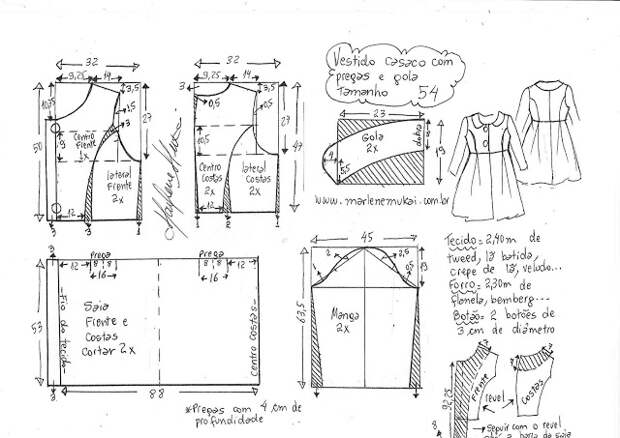 Vestido casaco com
pregas e gola
Tamanho 54
32
9,25 14
3,5
10,75
1,5
3
27
50
9
Centro
Frente
1x
lateral
Frente
2x
12
3
3
1
Marlene Mukai
32
9,25 14
3
0,5
3,5
0,5
10,5
27
47
Centro
Costas
2x
lateral
Costas
2x
12
1
2
1
23
Gola
2x
dobra
19
5,5
www.marlenemukai.com.br
Tecido= 2,40m de
tweed, lã batida,
crepe de lã, veludo...
Forro= 2,30m de
flanela, bemberg...
Botão= 2 botões de
3 cm de diâmetro
3
Prega
12 8 8
16
Prega
8 8 12
16
53
Fio do tecido
Saia
Frente e
Costas
Cortar 2x
Centro costas
3
88
*Pregas com 4 cm de
profundidade
45
2
2,5
0,5
19
63,5
Manga
2x
Frente
Costas
revel
92,25
8
Seguir com o revel
até a barra da saia